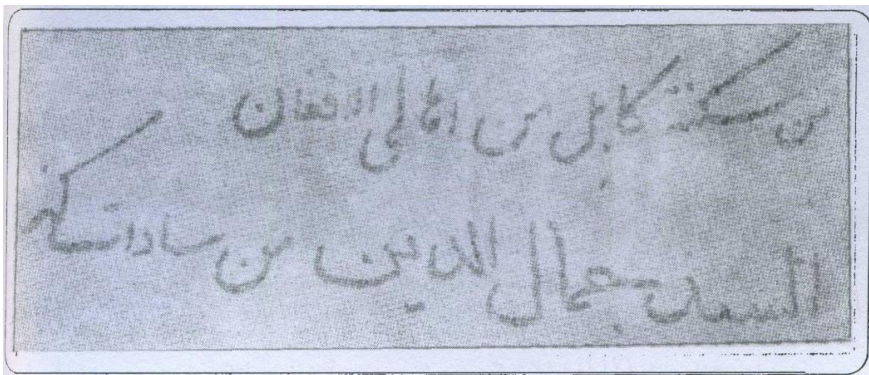 من سكنة كابل من اهالى الافغان
السيد جمال الدين من سادات كنر